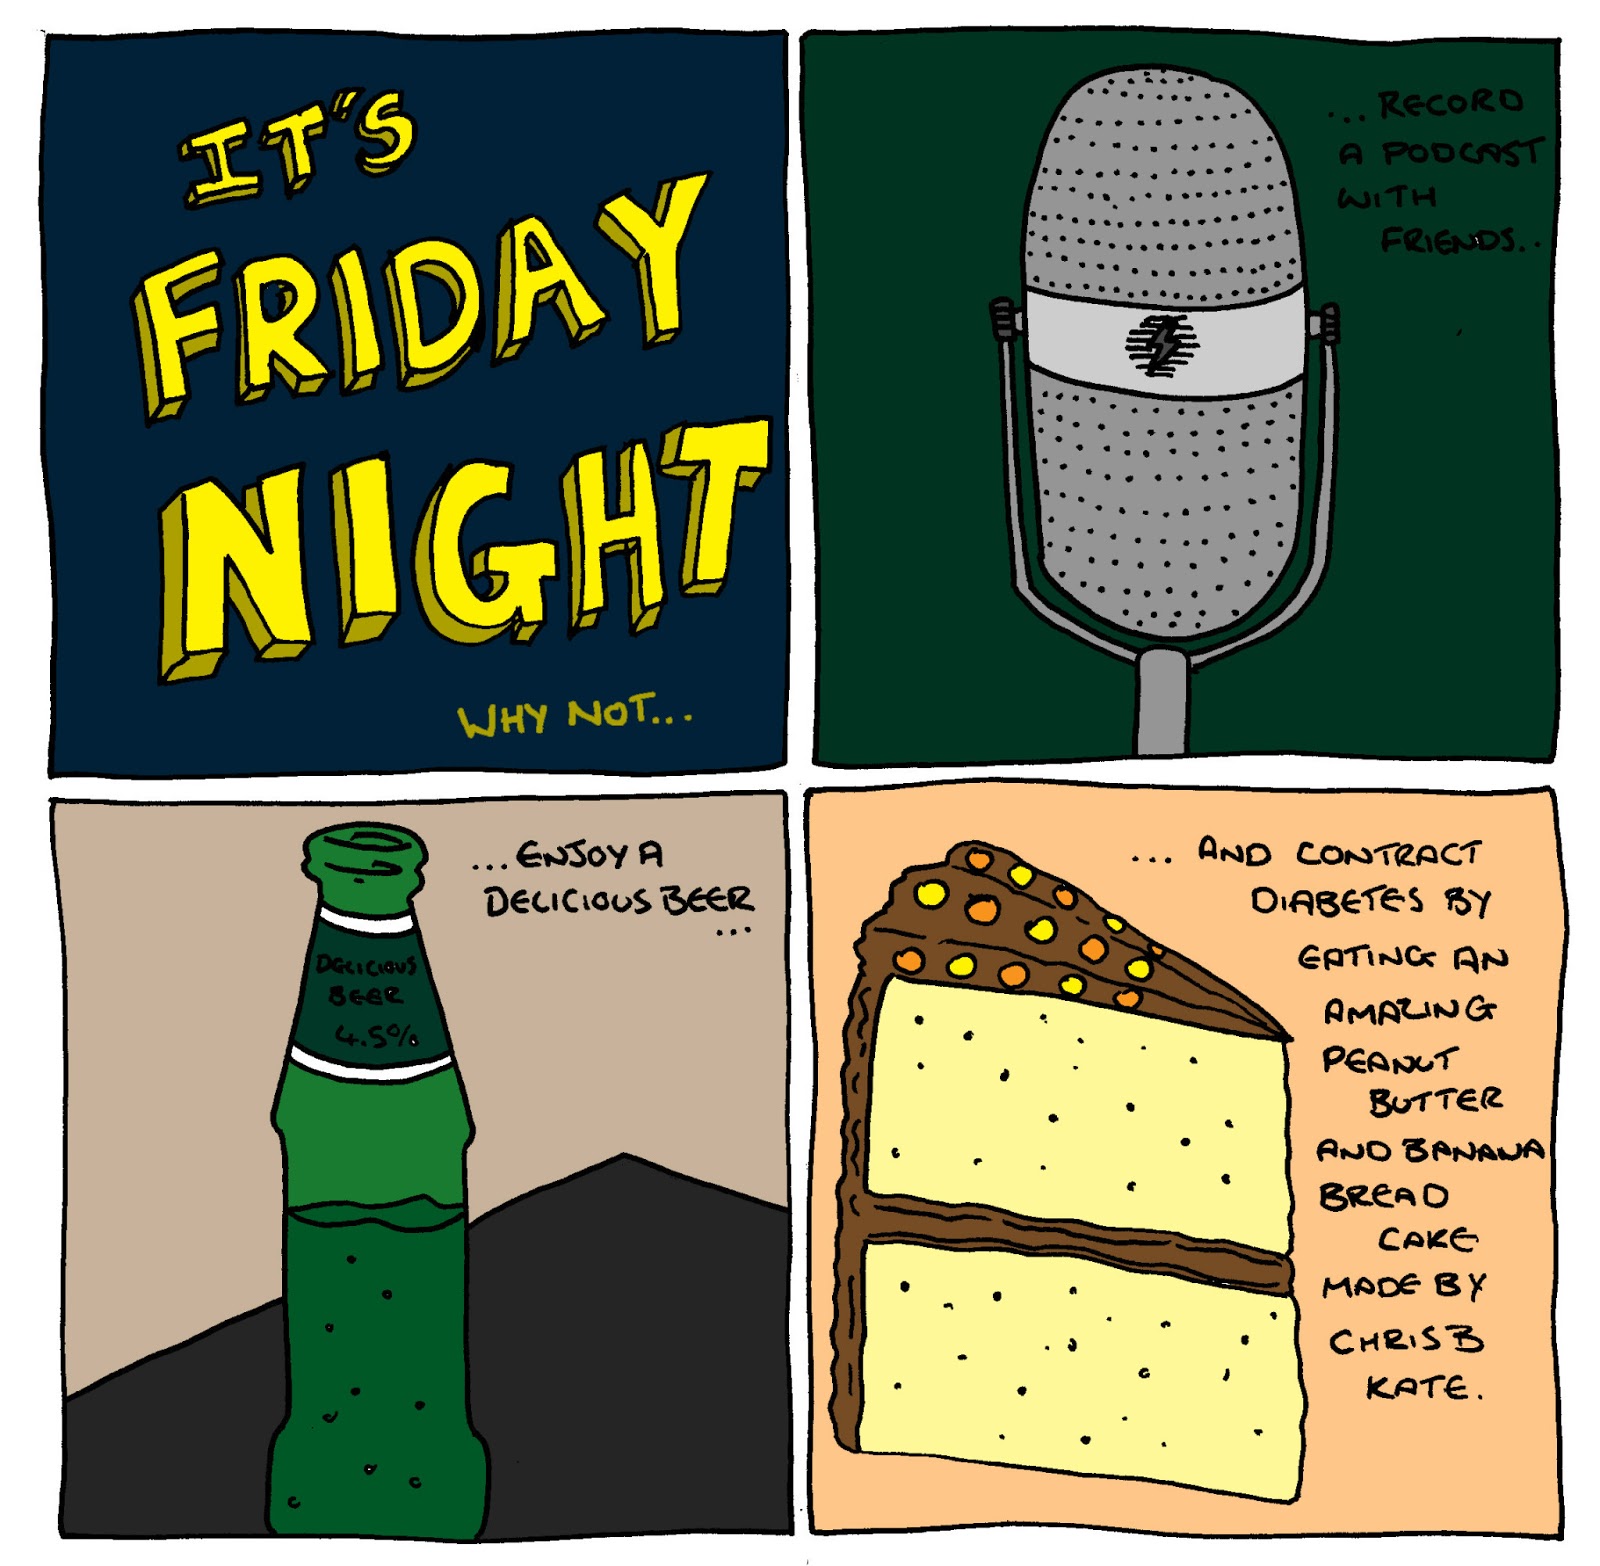 IT'S
FRIDAY
NIGHT
WHY NOT...
...RECORD
A PODCAST
WITH
FRIENDS..
...ENJOY A
DELICIOUS BEER
...
DELICIOUS
BEER
4.5%
... AND CONTRACT
DIABETES BY
EATING AN
AMAZING
PEANUT
BUTTER
AND BANANA
BREAD
CAKE
MADE BY
CHRIS B
KATE.